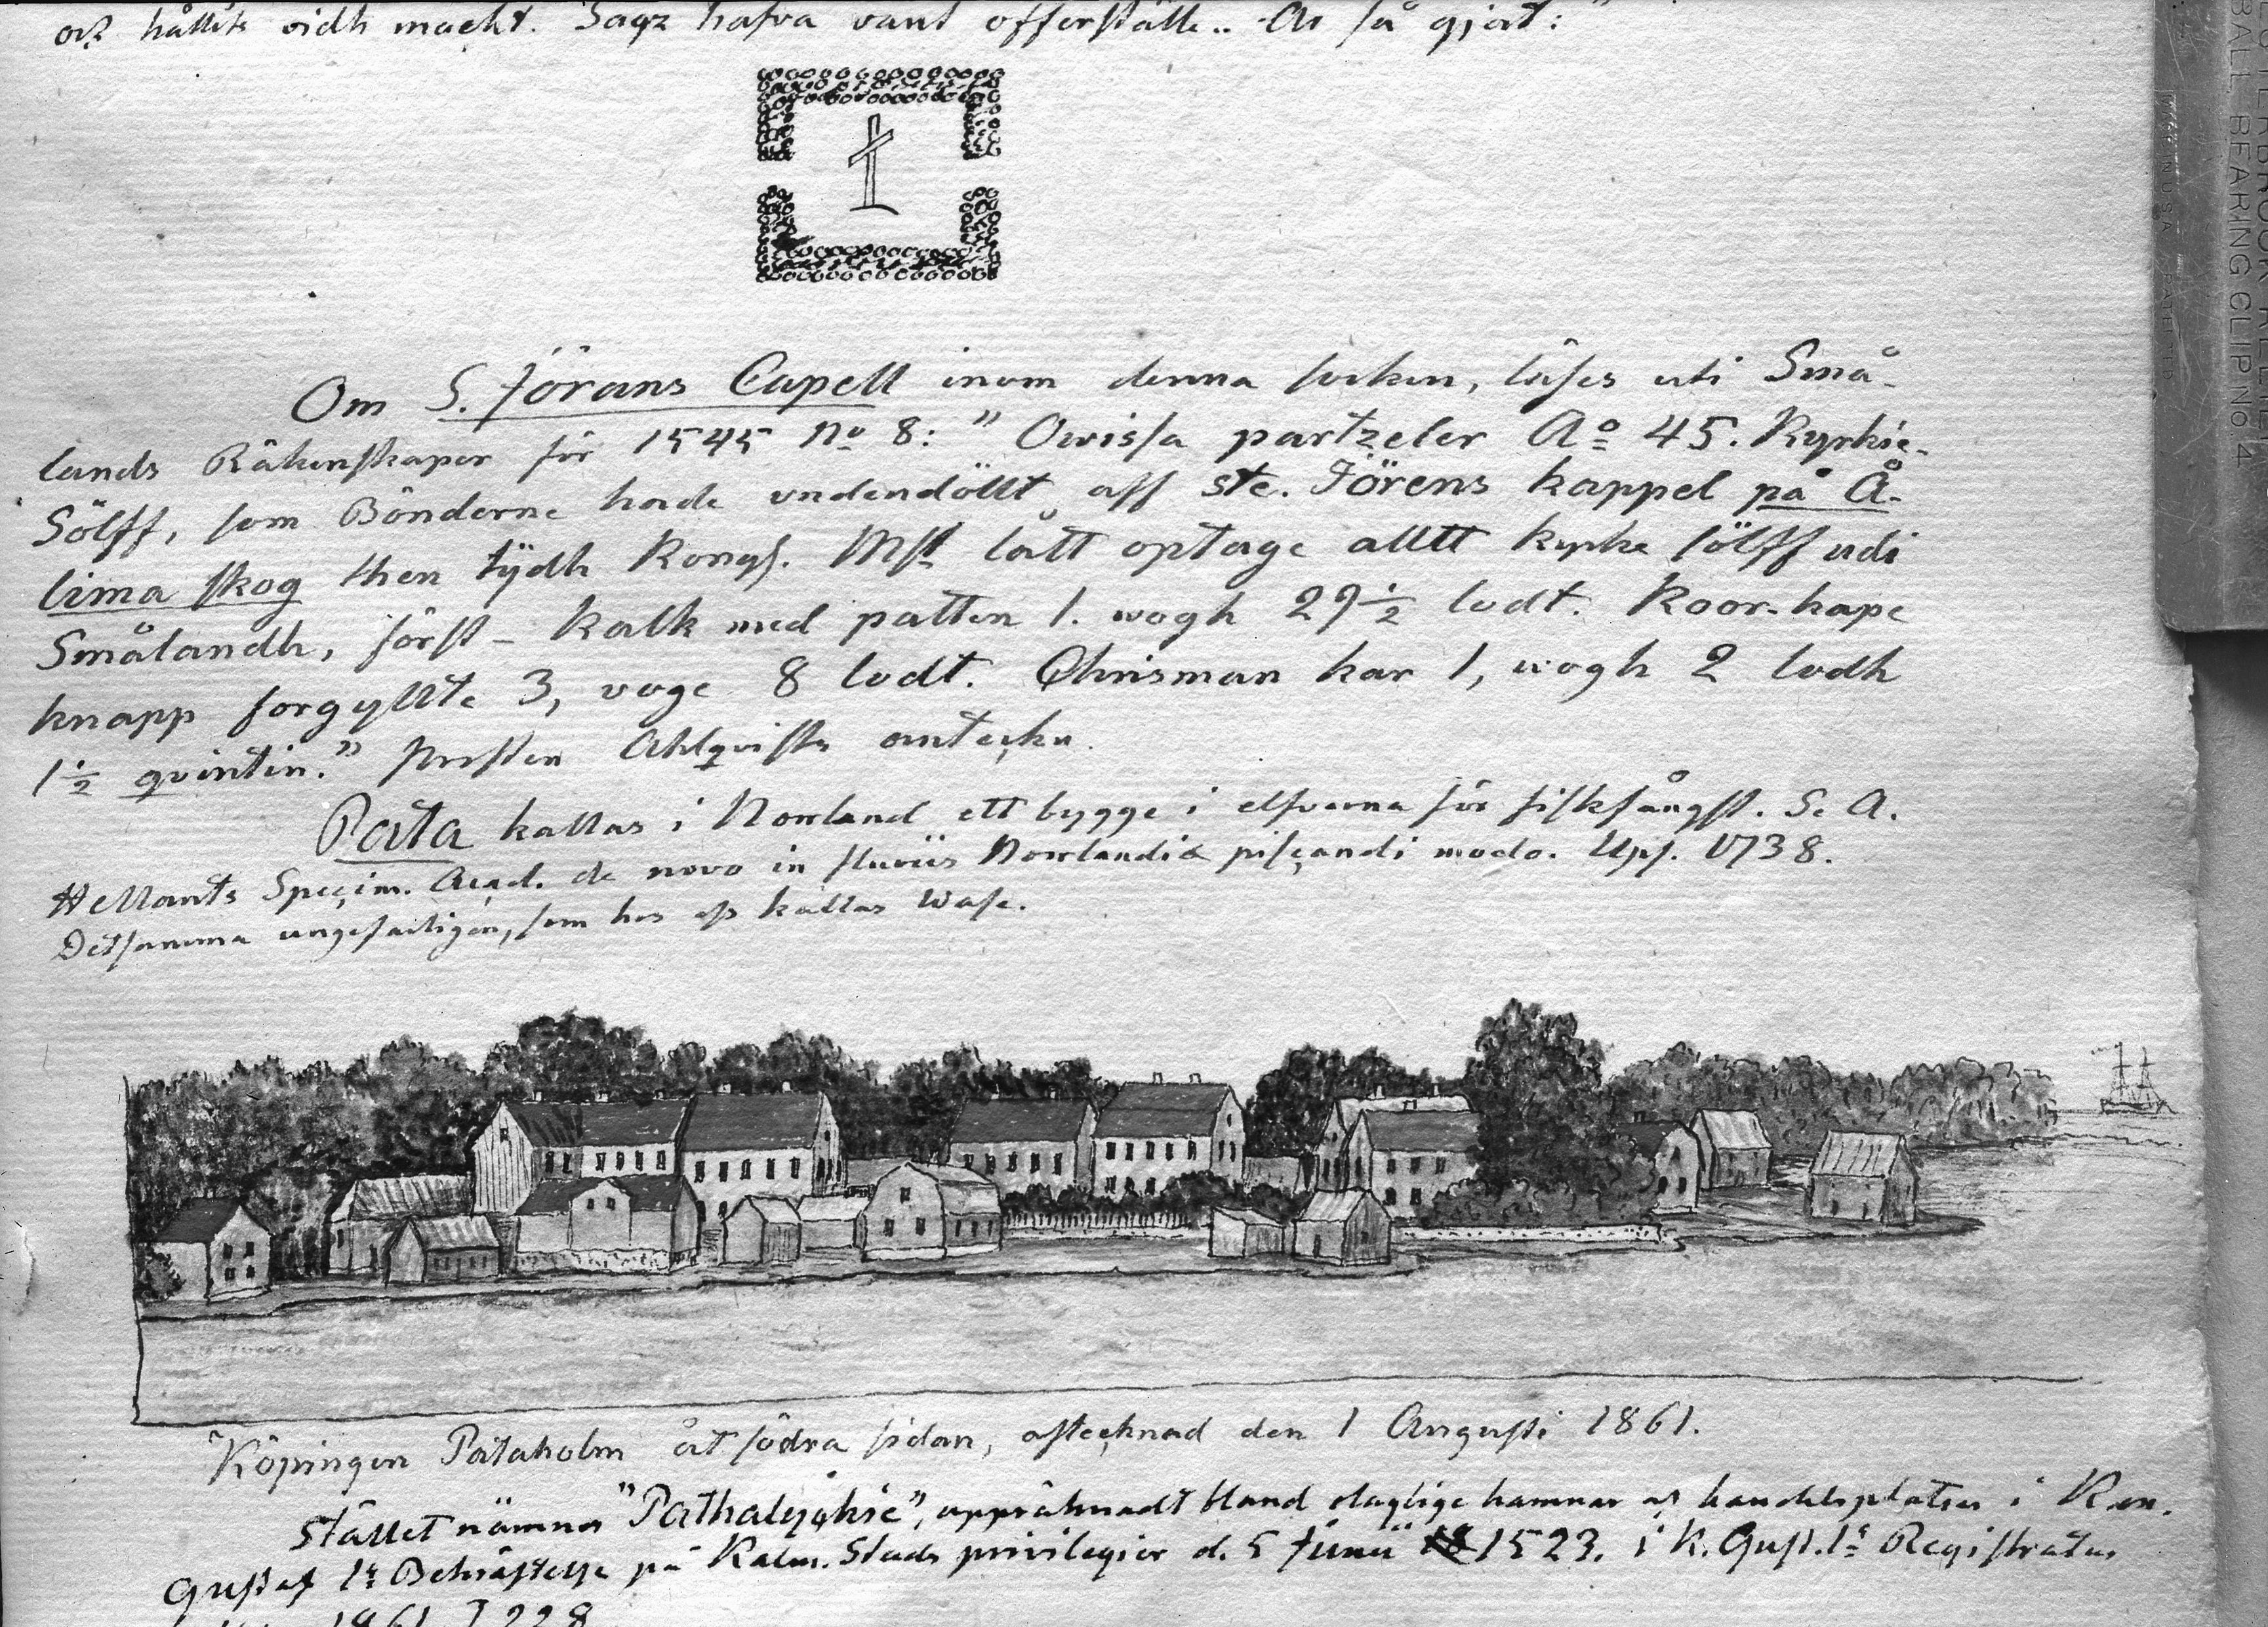 och hållits vidh macht. Sagz hafva varit offerställe.. Är så gjort:"
Om S. Jörans Capell inom denna socken, läses uti Små-
lands Räkenskaper för 1545 No 8: "Owissa partzeler Ao 45. Kyrkie-
Sölff, som Bönderne hade vndendöllt aff ste. Jörens kappel på Å-
lima skog then tÿdh Kongl. Mst lått optage alltt kyrke sölff udi
Smålandh, först – Kalk med patten 1. wogh 29½ lodt. Koor-kape
knapp forgyllte 3, voge 8 lodt. Chrisman kar 1, wogh 2 lodh
1½ qvintin." Prosten Ahlqvists anteckn.
Pata kallas i Norrland ett bygge i elfvarna för fiskfångst. Se A.
Hellants Specim. Acad. de novo in fluviis Norrlandiæ piscandi modo. Ups. 1738.
Detsamma ungefärligen, som hos oss kallas Wase.
Köpingen Pataholm åt södra sidan, aftecknad den 1 Augusti 1861.
Stället nämnes "Pathalyckie", uppräknadt bland olaglige hamnar och handelsplatser i Kon.
Gustaf 1s Bekräftelse på Kalm. Stads privilegier d. 5 Junii 1523. i K. Gust. 1s Registratur
1861. I 228
BALL BEARING CLIP NO 4